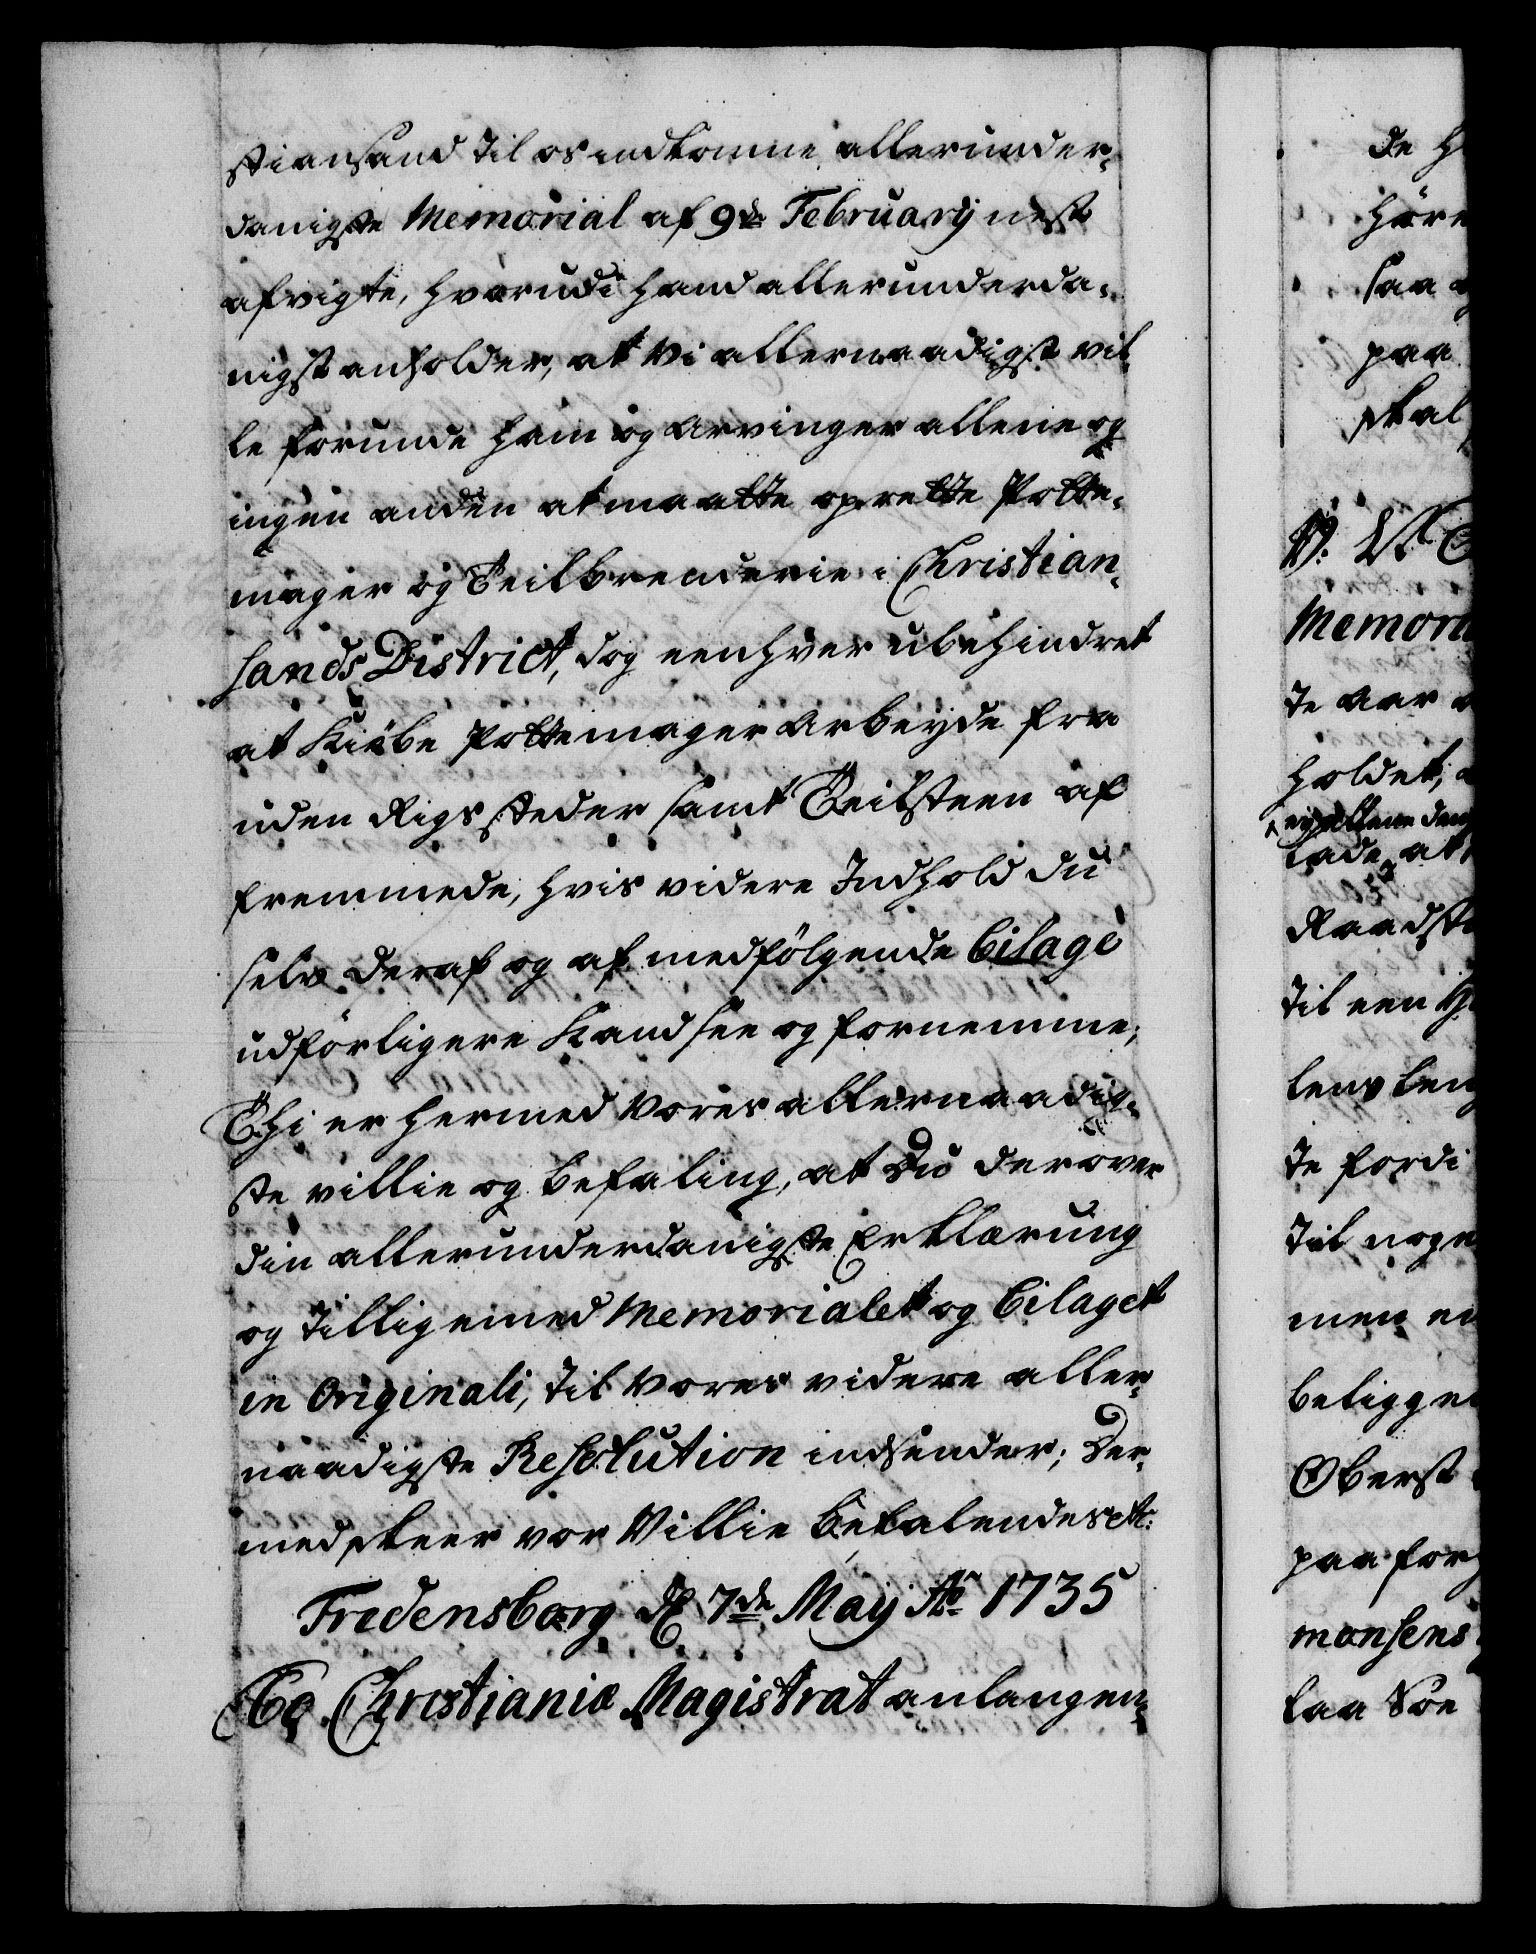 stiansand til os indkomne allerunder-
danigste Memorial af 9de February nest
afvigte, hvorudi hand allerunderda-
nigst anholder, at Vi allernaadigst vil-
le forunde ham og Arvinger allene og
ingen anden at maatte oprette Potte-
mager og Teilbrenderie i Christian-
sands District, dog eenhver ubehindret
at Kiøbe Pottemager Arbeyde fra
uden Rigs steder samt Teilsteen af
fremmede, hvis videre Indhold du
selv deraf og af medfølgende bilage
udførligere Kand see og fornemme;
Thi er hermed Vores allernaadig-
ste villie og befaling, at Du derover
din allerunderdanigste Erklæring
og tillige med Memorialet og bilaget
in Originali, til Vores videre aller-
naadigste Resolution indsender; Der-
med skeer vor Villie befalendes etc:
Fredensborg d 7de Maij Ao 1735
To Christianiæ Magistrat anlangen-
de H
høre
saa
paa
skal
Memori
te aar
holdet,
ey allene den
lade at
Raadst
til een
te fordi
til noge
men
beligge
Oberst
paa for
monsens
laa